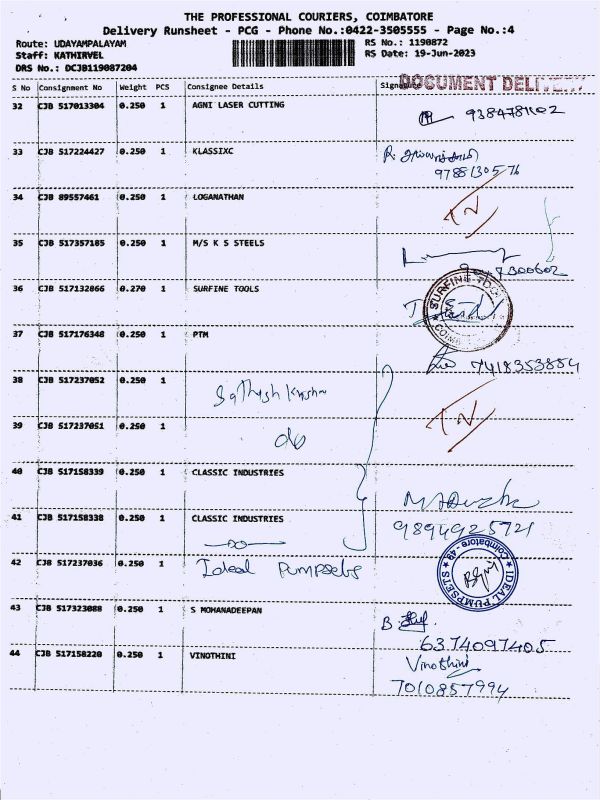 THE PROFESSIONAL COURIERS, COIMBATORE
Delivery Runsheet - PCG - Phone No.:0422-3505555 - Page No.:4
Route: UDAYAMPALAYAM RS No.: 1190872
Staff: KATHIRVEL RS Date: 19-Jun-2023
DRS No.: DCJB119087204
S No Consignment No Weight PCS Consignee Details Signature DOCUMENT
32 CJB 517013304 0.250 1 AGNI LASER CUTTING
9384781102
33 CJB 517224427 0.250 1 KLASSIXC
34 CJB 89557461 0.250 1 LOGANATHAN
35 CJB 517357185 0.250 1 M/S K S STEELS
36 CJB 517132866 0.270 1 SURFINE TOOLS
SURFINE
37 CJB 517176348 0.250 1 PTM
7418353884
38 CJB 517237052 0.250 1
39 CJB 517237051 0.250 1
do
40 CJB 517158339 0.250 1 CLASSIC INDUSTRIES
41 CJB 517158338 0.250 1 CLASSIC INDUSTRIES
9894925721
42 CJB 517237036 0.250 1 Ideal Pumpsets
IDEAL PUMPSETS Coimbatore - 49
43 CJB 517323088 0.250 1 S MOHANADEEPAN
6374097405
44 CJB 517158220 0.250 1 VINOTHINI
Vinothini
7010857994